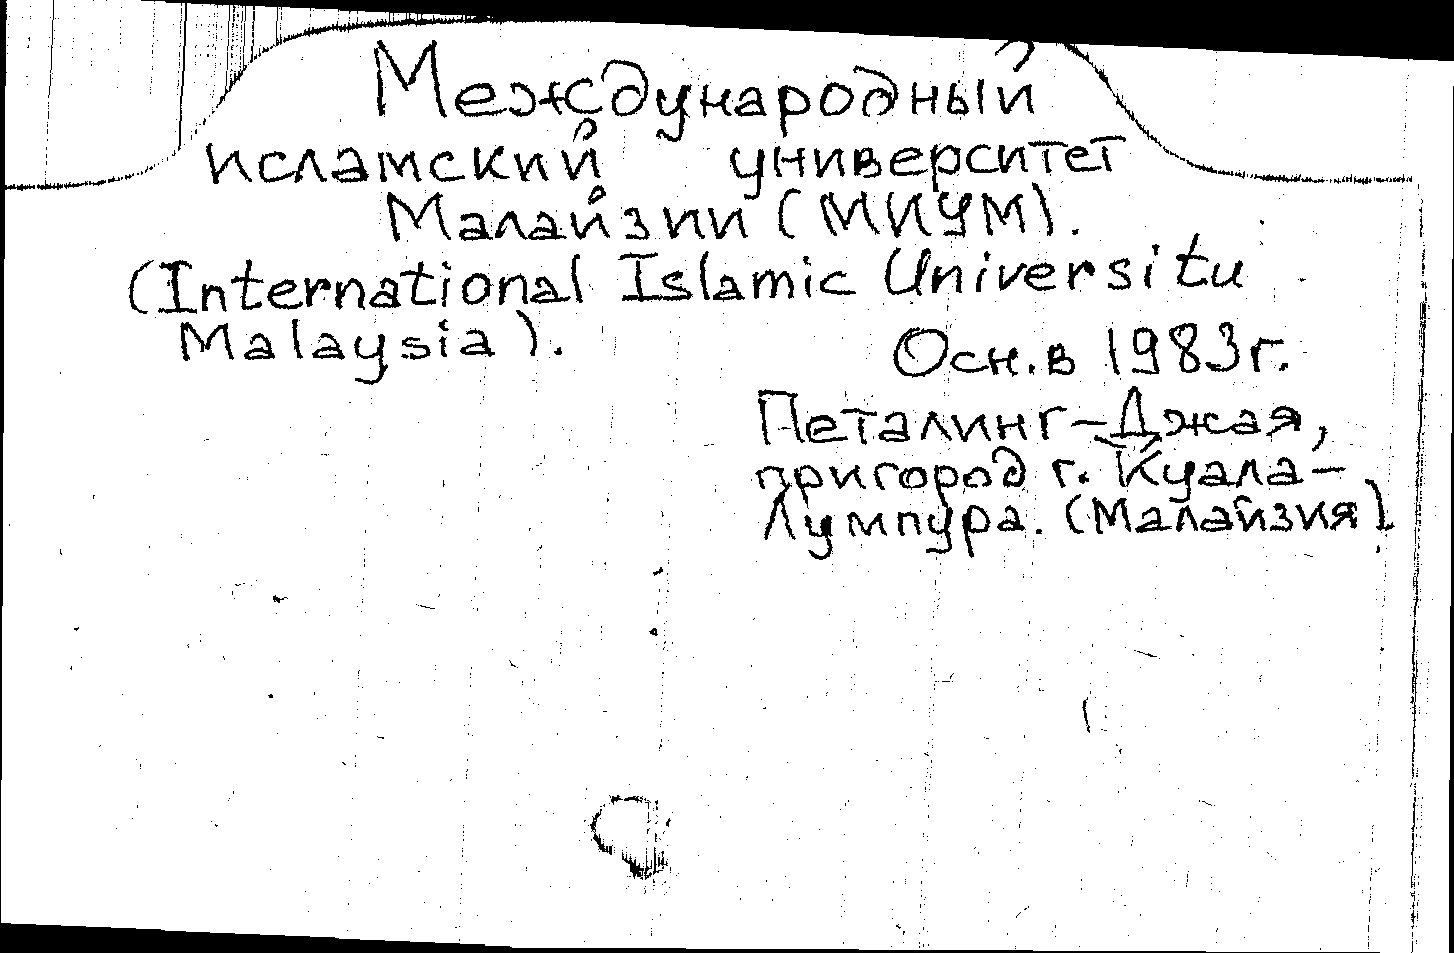 Международный
исламский университет
Малайзии (МИУМ).
(International Islamic Universitu
Malaysia).
Осн. в 1983г.
Петалинг-Джая,
пригород г. Куала-
Лумпура. (Малайзия)